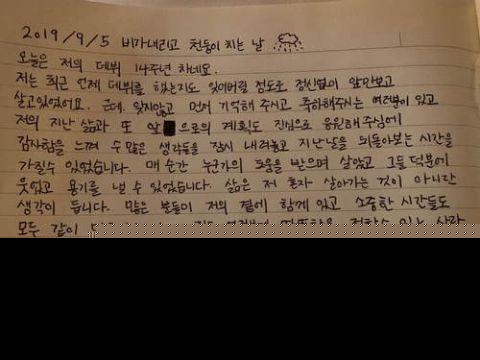 2019/9/5 비가내리고 천둥이 치는 날
오늘은 저의 데뷔 14주년 차네요.
저는 최근 언제 데뷔를 했는지도 잊어버릴 정도로 정신없이 앞만보고
살고있었어요. 근데, 잊지않고 먼저 기억해 주시고 축하해주시는 여러분이 있고
저의 지난 삶과 또 앞으로의 계획도 진심으로 응원해주심에
감사함을 느끼며 수많은 생각들을 잠시 내려놓고 지난날을 되돌아보는 시간을
가질수 있었습니다. 매 순간 누군가의 도움을 받으며 살았고 그들 덕분에
웃었고 용기를 낼 수 있었습니다. 삶은 저 혼자 살아가는 것이 아니란
생각이 듭니다. 많은 분들이 저의 곁에 함께 있고 소중한 시간들도
모두 같이